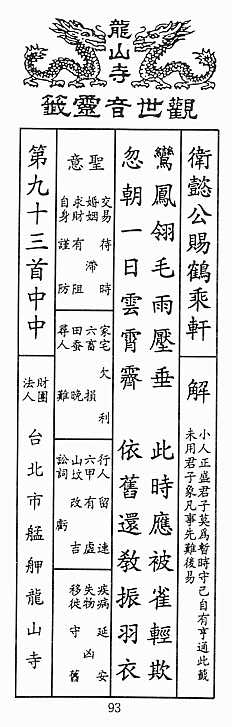 龍山寺
觀世音靈籤
衛懿公賜鶴乘軒
解
小人正盛君子莫為暫時守己自有亨通此籤
未用君子象凡事先難後易
鸞鳳翎毛雨壓垂 此時應被雀輕欺
忽朝一日雲霄霽 依舊還教振羽衣
聖意
交易 待時
婚姻 滯
求財 有阻
自身 謹防
家宅 欠利
六畜 損
田蚕 晚
尋人 難
行人 留連
六甲 有虛
山坟 改吉
訟詞 虧
疾病 延安
失物 凶
移徙 守舊
第九十三首中中
財團法人 台北市艋舺龍山寺
93